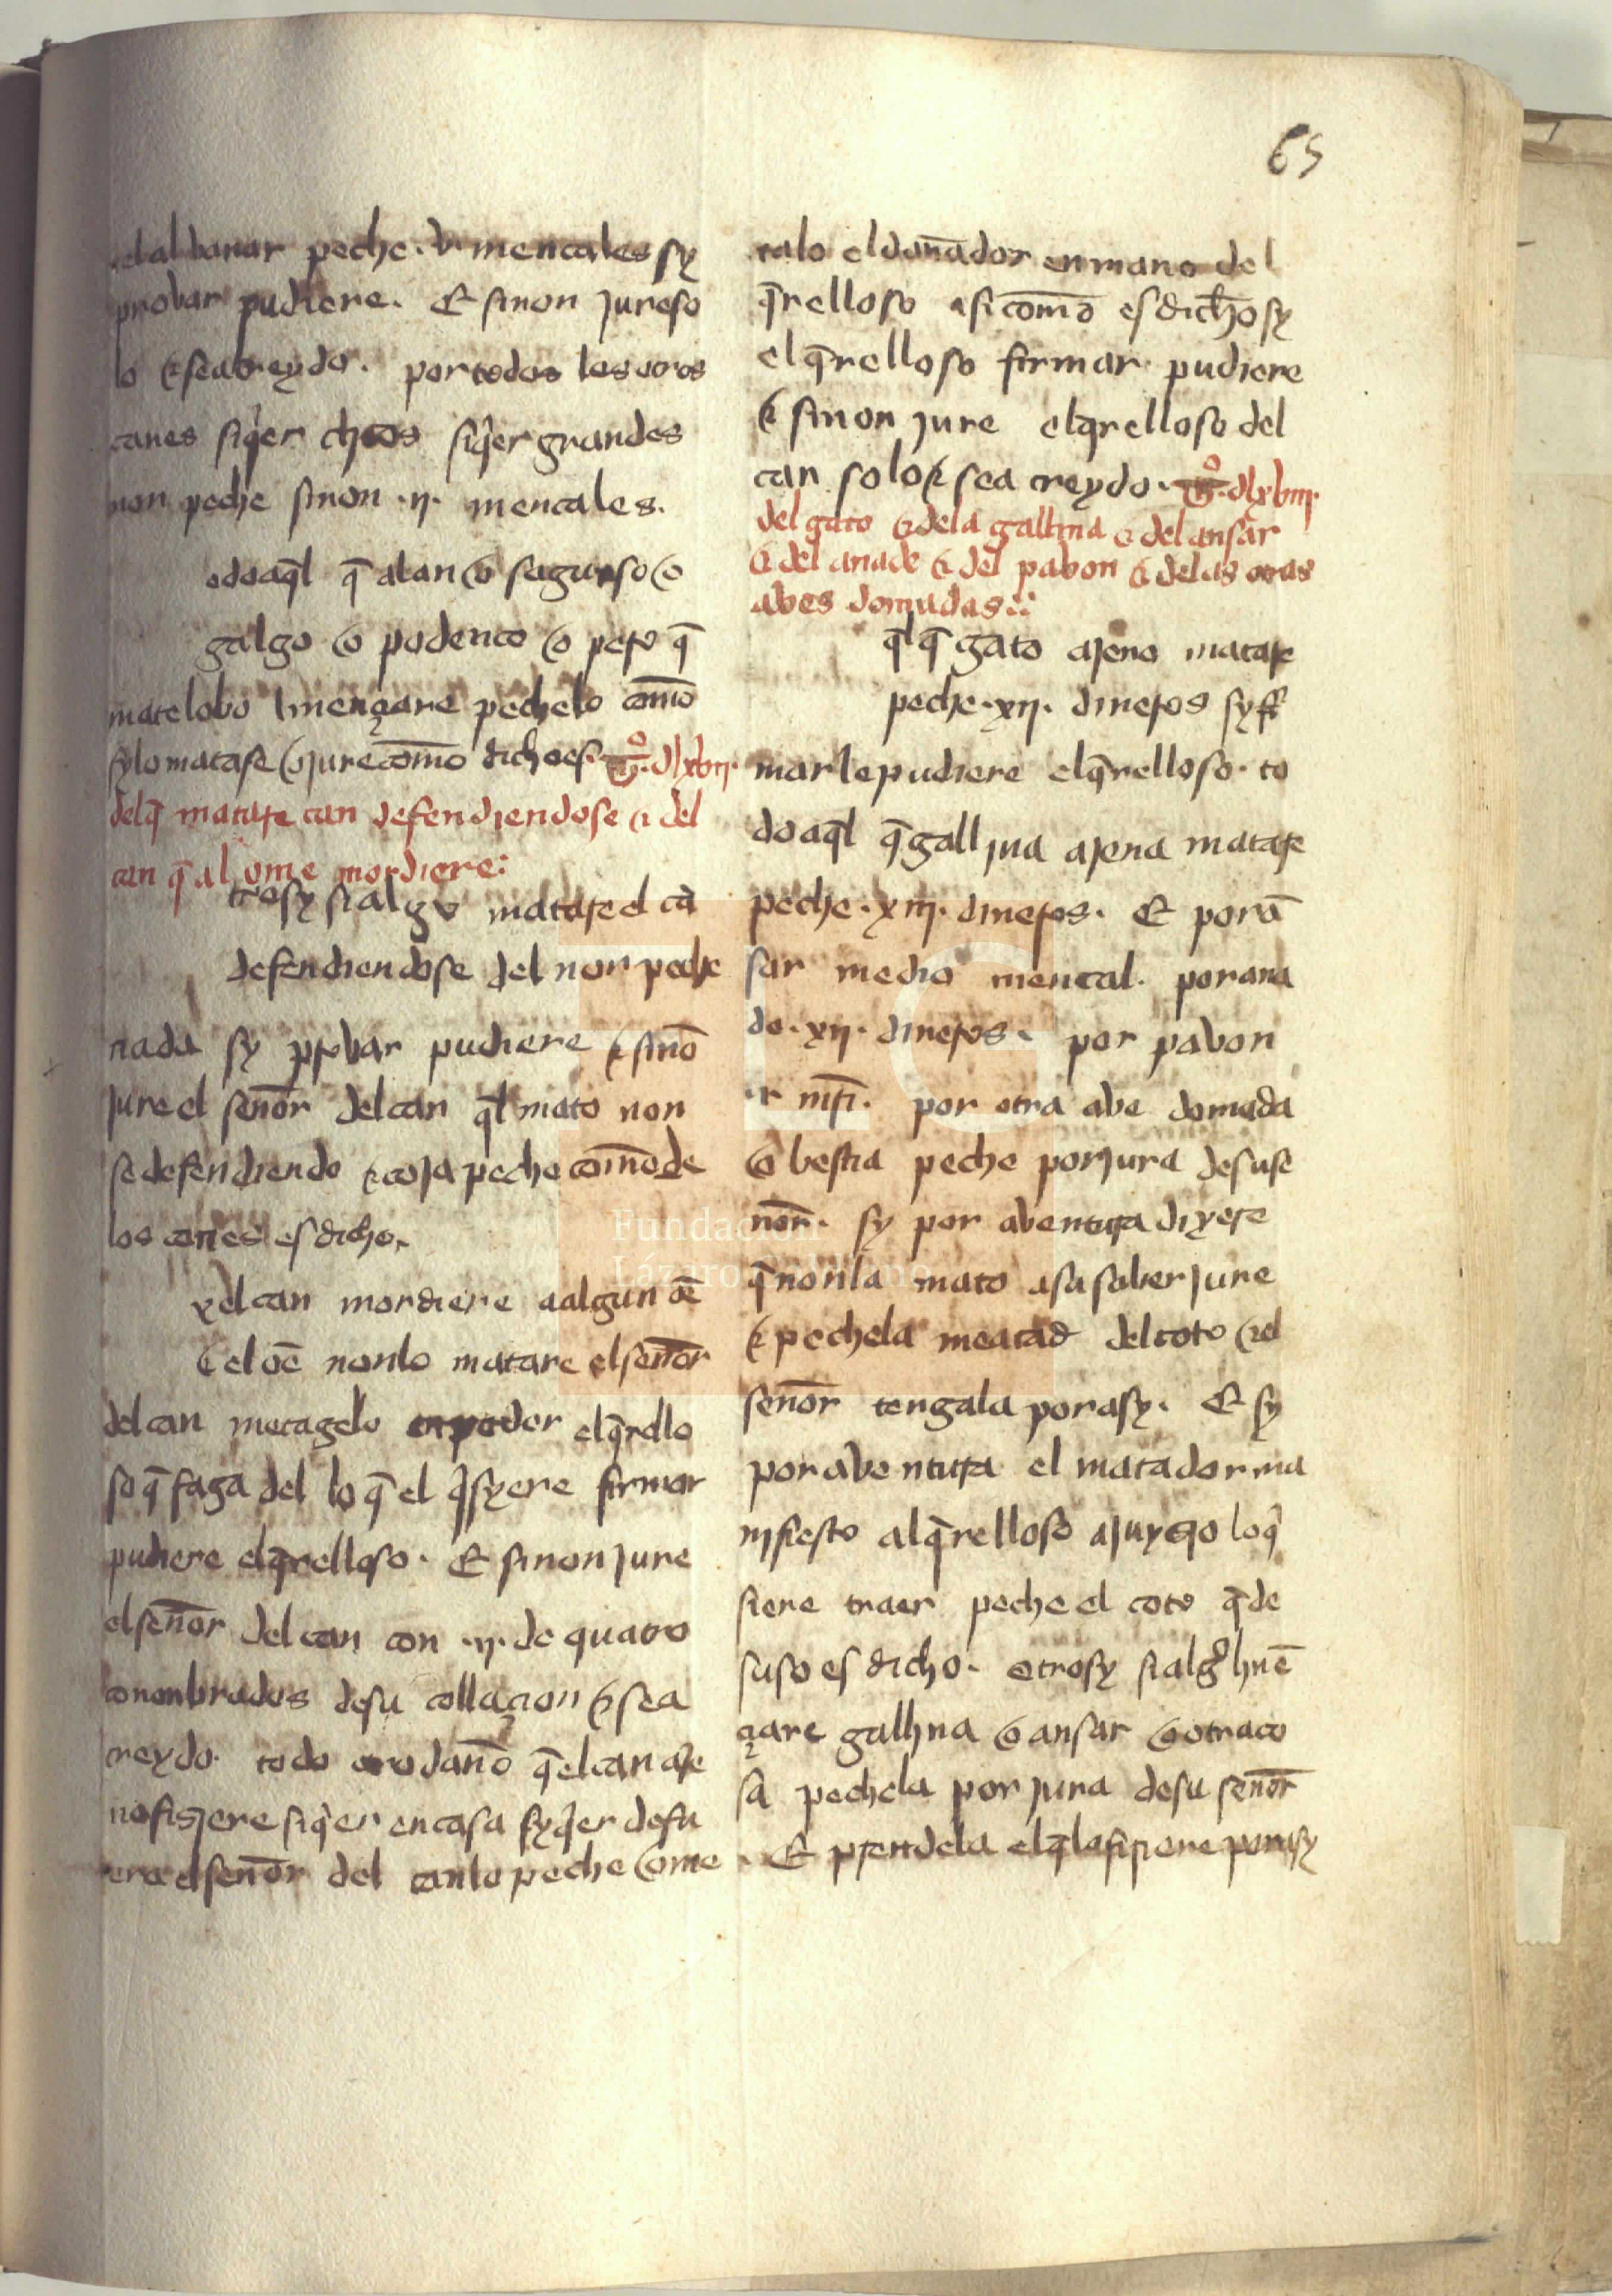 65
el albanar peche .v. mencales sy
probar pudiere. Et sinon jure so
lo & sea creydo. por todos los otros
canes siq̃er chcos siq̃er grandes
non peche sinon .ij. mencales.
odo aq̃l q̃ alan o sagueso o
galgo o podenco o pero q̃
mate lobo menҫare pechelo com̃o
sy lo matase o jure com̃o dicho es. tº. dlxvij.
del q̃ matare can defendiendose & del
can q̃ al ome mordiere:
trosy si algo matare el cã
defendiendose del non peche
nada sy probar pudiere & sinõ
jure el señor del can q̃l mato non
se defendiendo & coja peche com̃o de
los canes es dicho.
y el can mordiere a algun oẽ
& el oẽ non lo matare el señor
del can metagelo en poder el q̃rello
so q̃ faga del lo q̃ el q̃syere firmar
pudiere el q̃relloso. Et sinon jure
el señor del can con .ij. de quatro
connonbrados de su collaҫion & sea
creydo. todo otro daño q̃ el can aje
no fisjere siq̃er en casa syq̃er de fu
era el señor del can lo peche o me
talo el dañador en mano del
q̃relloso asi com̃o es dicho sy
el q̃relloso firmar pudiere
& sinon jure el q̃relloso del
can solo & sea creydo. tº. dlxviij.
del gato & de la gallina & del ansar
& del anade & del pabon & de las otras
abes domadas:
q̃l q̃ gato ajeno matare
peche .xij. dineros sy fir
mar le pudiere el q̃relloso. to
do aq̃l q̃ gallina ajena matare
peche .xiij. dineros. Et por ã
sar medio mencal. por ana
de .xij. dineros. por pabon
.v. mr̃s. por otra abe domada
o bestia peche por jura de su se
ñor. sy por abentura dixere
q̃ non la mato a su saber jure
& peche la meatad del coto & el
señor tengala para sy. Et sy
por abentura el matador ma
nifiesto al q̃relloso a juyzio lo q̃
siere traer peche el coto q̃ de
suso es dicho. otrosy si algº linẽ
ҫare gallina o ansar o otra co
sa pechela por jura de su señor
Et prendela el q̃ la firiere para sy